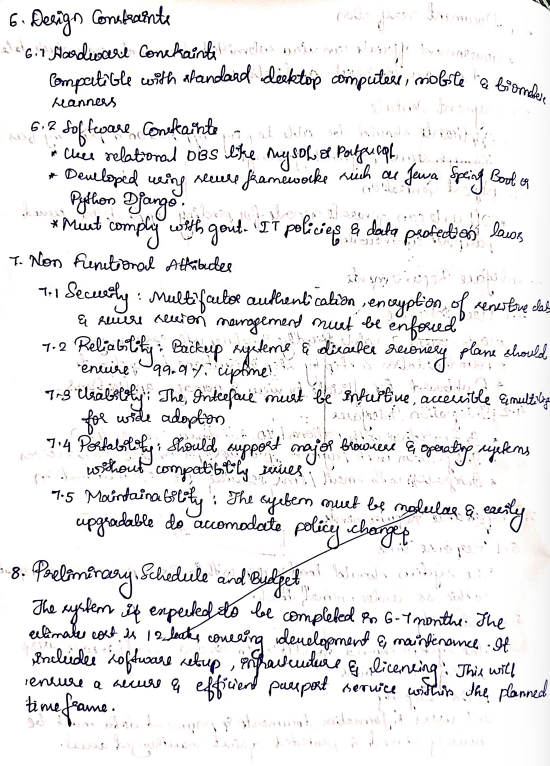 6. Design Constraints
6.1 Hardware Constraints
Compatible with standard desktop computers, mobile & biometric
scanners
6.2 Software Constraints
* Uses relational DBS like MySQL or PostgreSQL
* Developed using secure frameworks such as Java Spring Boot or
Python Django.
* Must comply with govt. IT policies & data protection laws
7. Non Functional Attributes
7.1 Security : Multifactor authentication, encryption of sensitive data
& secure session management must be enforced
7.2 Reliability : Backup systems & disaster recovery plans should
ensure 99.9% uptime
7.3 Usability : The Interface must be intuitive, accessible &
for wide adoption
7.4 Portability : Should support major browsers & operating systems
without compatibility issues.
7.5 Maintainability : The system must be modular & easily
upgradable do accomodate policy changes
8. Preliminary Schedule and Budget
The system is expected to be completed in 6-7 months. The
estimate cost is 12 lacks covering development & maintenance. It
includes software setup, infrastructure & licencing. This will
ensure a secure & efficient passport service within the planned
timeframe.